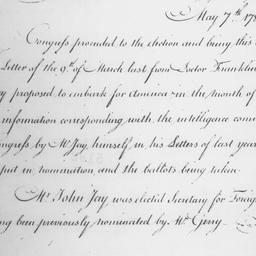 May 7th. 178
Congress proceeded to the election and being this
Letter of the 9th. of March last from Doctor Franklin
proposed to embark for America in the month of
information corresponding with the intelligence com
ongress by Mr. Jay himself in his Letters of last year
put in nomination, and the ballots being taken
Mr. John Jay was elected Secretary for Foreig
ng been previously nominated by Mr. Gerry.